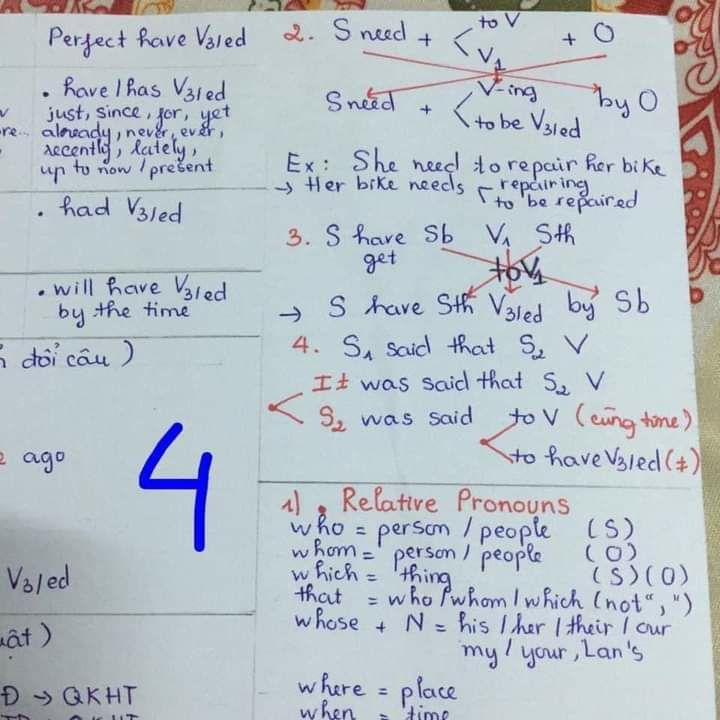 Perfect have V3/ed
. have/has V3/ed
just, since, for, yet
already, never, ever,
recently, lately,
up to now/present
. had V3/ed
. will have V3/ed
by the time
đổi câu )
ago
4
V3/ed
uật )
Đ → QKHT
2. S need + < to V + O
V1
S need + < V-ing by O
to be V3/ed
Ex: She need to repair her bike
→ Her bike needs repairing
to be repaired
3. S have Sb V1 Sth
get
to V1
→ S have Sth V3/ed by Sb
4. S1 said that S2 V
It was said that S2 V
S2 was said to V (cùng time)
to have V3/ed (≠)
1) . Relative Pronouns
who = person / people (S)
whom = person / people (O)
which = thing (S) (O)
that = who / whom / which (not ",")
whose + N = his / her / their / our
my / your, Lan's
where = place
when = time